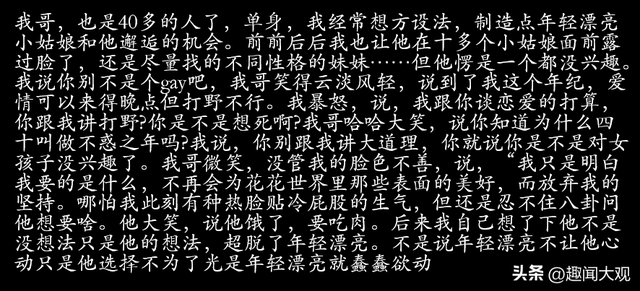 我哥，也是40多的人了，单身，我经常想方设法，制造点年轻漂亮
小姑娘和他邂逅的机会。前前后后我也让他在十多个小姑娘面前露
过脸了，还是尽量找的不同性格的妹妹……但他愣是一个都没兴趣。
我说你别不是个gay吧，我哥笑得云淡风轻，说到了我这个年纪，爱
情可以来得晚点但打野不行。我暴怒，说，我跟你谈恋爱的打算，
你跟我讲打野?你是不是想死啊?我哥哈哈大笑，说你知道为什么四
十叫做不惑之年吗?我说，你别跟我讲大道理，你就说你是不是对女
孩子没兴趣了。我哥微笑，没管我的脸色不善，说，“我只是明白
我要的是什么，不再会为花花世界里那些表面的美好，而放弃我的
坚持。哪怕我此刻有种热脸贴冷屁股的生气，但还是忍不住八卦问
他想要啥。他大笑，说他饿了，要吃肉。后来我自己想了下他不是
没想法只是他的想法，超脱了年轻漂亮。不是说年轻漂亮不让他心
动只是他选择不为了光是年轻漂亮就蠢蠢欲动
头条 @趣闻大观